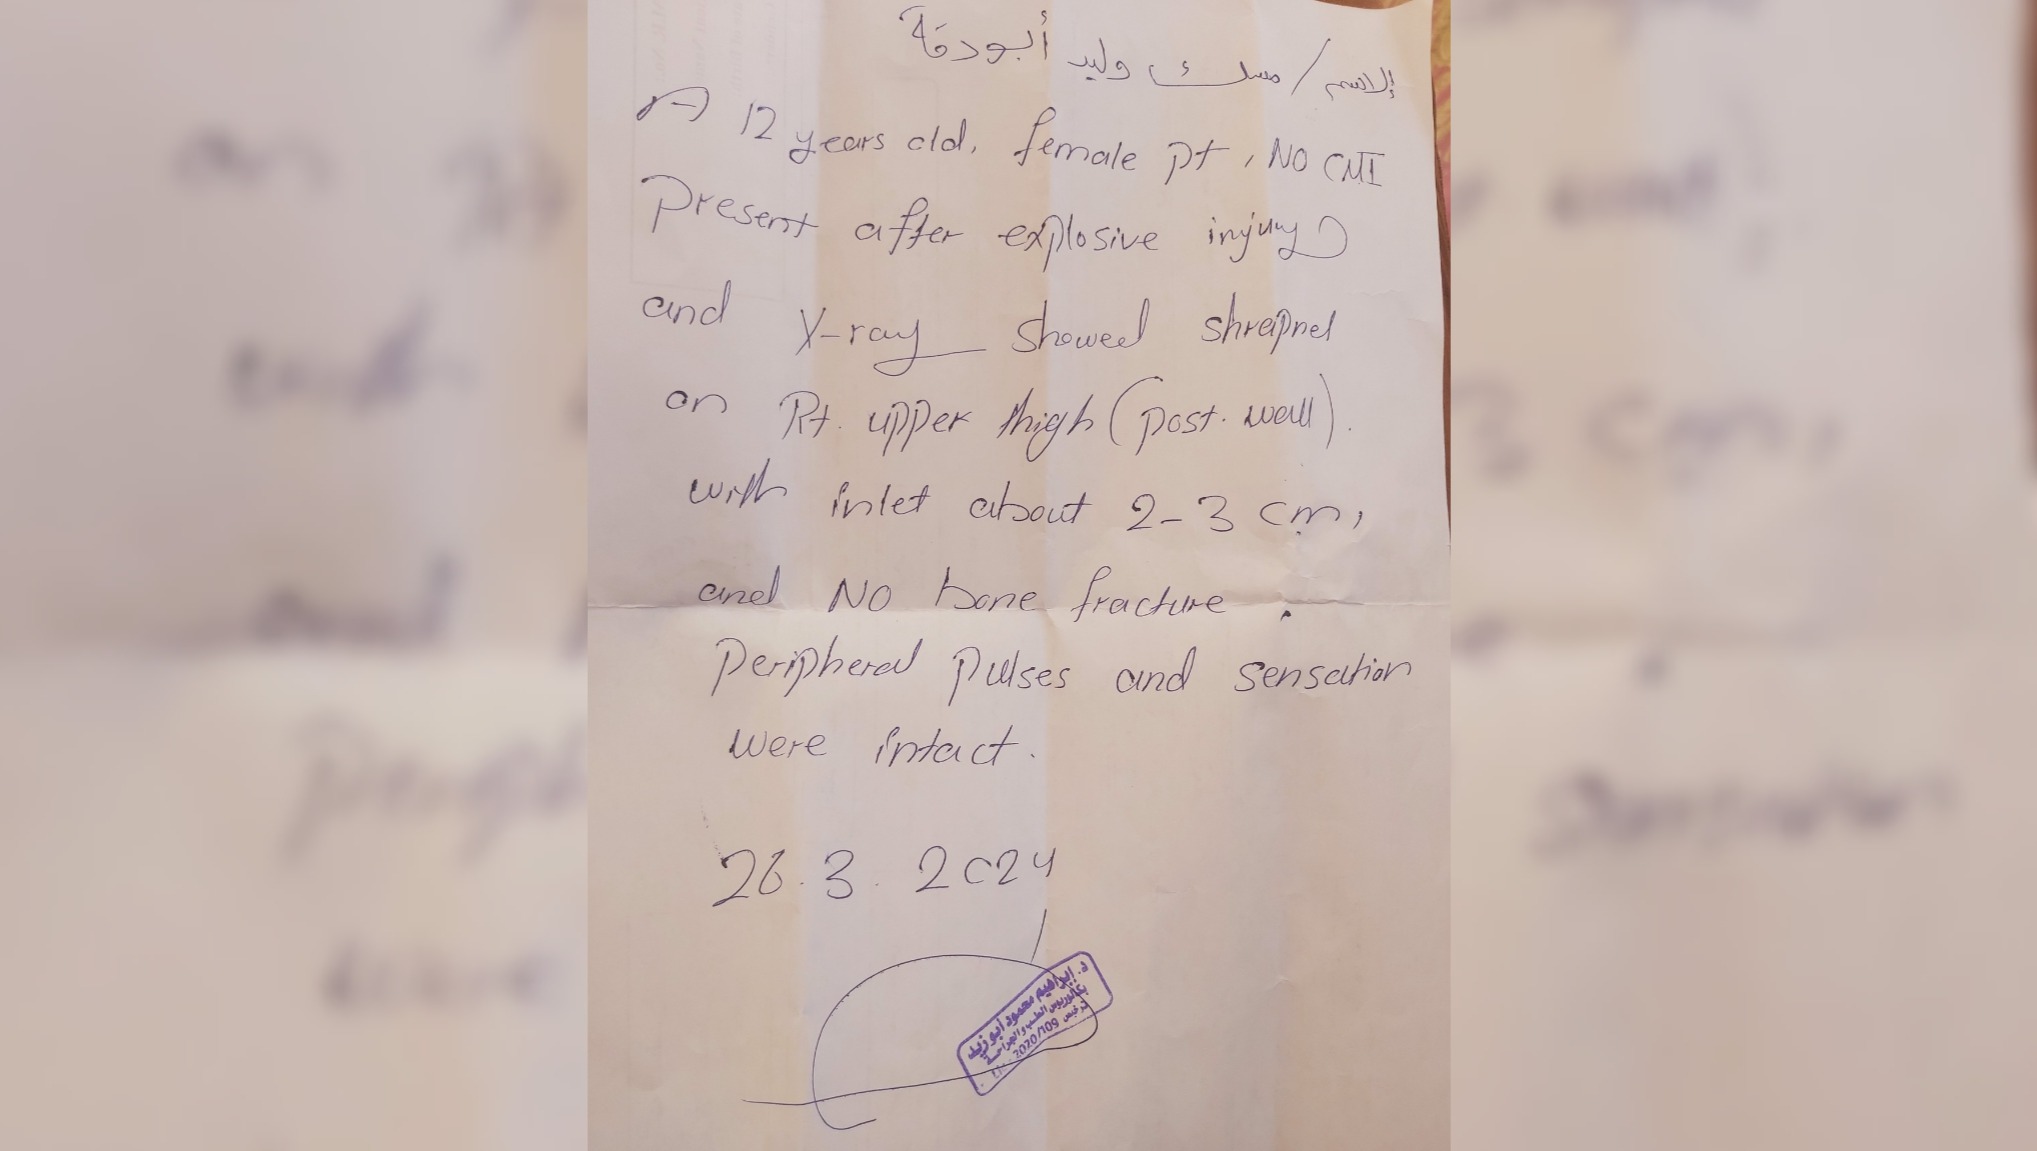 الاسم / مسك وليد أبودقة
A 12 years old, female pt, NO CMI
Present after explosive injury
and X-ray showed shrapnel
on Rt. upper thigh (post. wall).
with inlet about 2-3 cm,
and NO bone fracture.
Peripheral pulses and sensation
were intact.
26.3.2024
د. إبراهيم محمود أبو زيد
بكالوريوس الطب والجراحة
ترخيص 2020/109